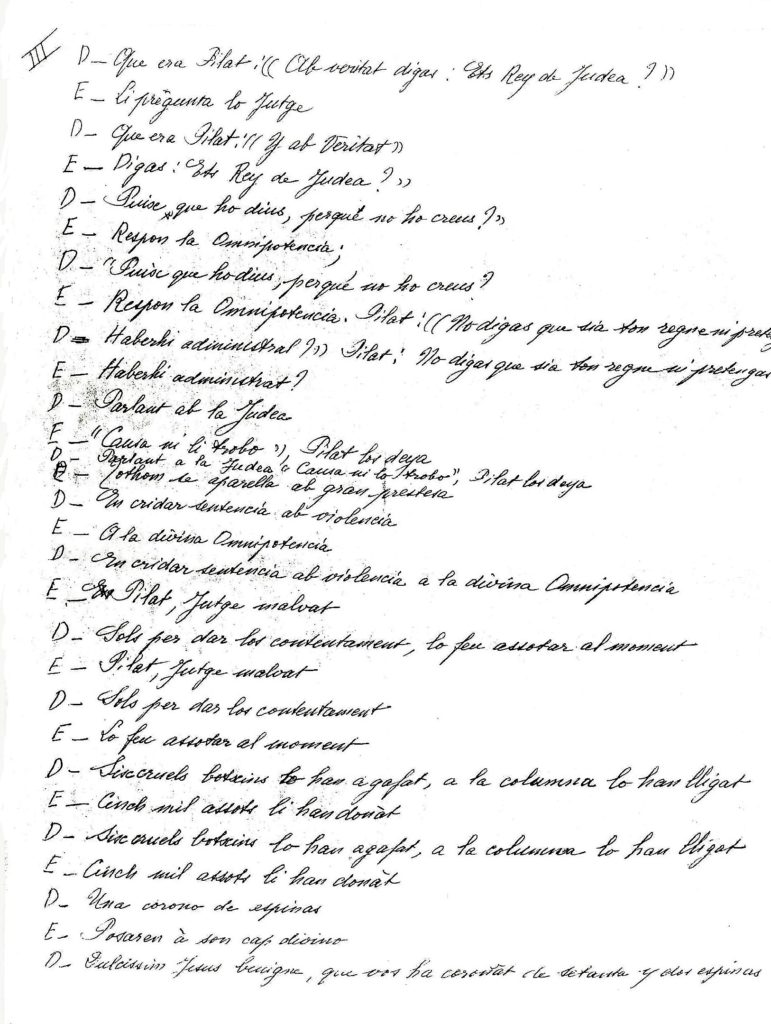 III
D - Que era Pilat: "(Ab veritat digas: Ets Rey de Judea?"
E - Li pregunta lo Jutge
D - Que era Pilat: "Y ab Veritat"
E - Digas: Ets Rey de Judea?"
D - Puixe que ho dius, perqué no ho creus?"
E - Respon la Omnipotencia;
D - "Puixe que ho dius, perqué no ho creus?
E - Respon la Omnipotencia. Pilat: "No digas que sia ton regne ni preteg
D - Haberhi administrat?" Pilat: No digas que sia ton regne ni pretengas
E - Haberhi administrat?
D - Parlant ab la Judea
E - "Causa ni li trobo", Pilat los deya
D - Parlant a la Judea "Causa ni lo trobo", Pilat los deya
E - Tothom se aparella ab gran prestesa
D - En cridar sentencia ab violencia
E - A la divina Omnipotencia
D - En cridar sentencia ab violencia a la divina Omnipotencia
E - Pilat, Jutge malvat
D - Sols per dar los contentament, lo feu assotar al moment
E - Pilat, Jutge malvat
D - Sols per dar los contentament
E - Lo feu assotar al moment
D - Sixcruels botxins lo han agafat, a la columna lo han lligat
E - Cinch mil assots li han donat
D - Sixcruels botxins lo han agafat, a la columna lo han lligat
E - Cinch mil assots li han donàt
D - Una corono de espinas
E - Posaren à son cap divino
D - Dulcissim Jesus benigne, que vos ha coronat de setanta y dos espinas